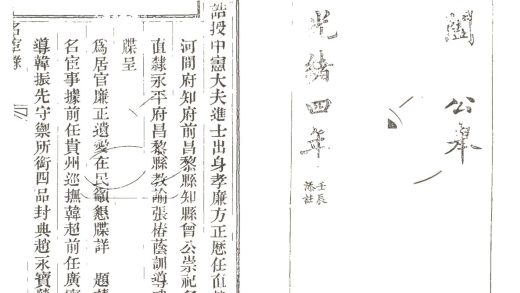 公舉
光緒四年
壬辰
誥授中憲大夫進士出身孝廉方正歷任直
河間府知府前昌黎縣知縣曾公崇祀名
直隸永平府昌黎縣教諭張椿蔭訓導
牒呈
為居官廉正遺愛在民籲懇牒詳 題
名宦事據前任貴州巡撫韓超前任廣
導韓振先守禦所銜四品封典趙永寶
名宦錄